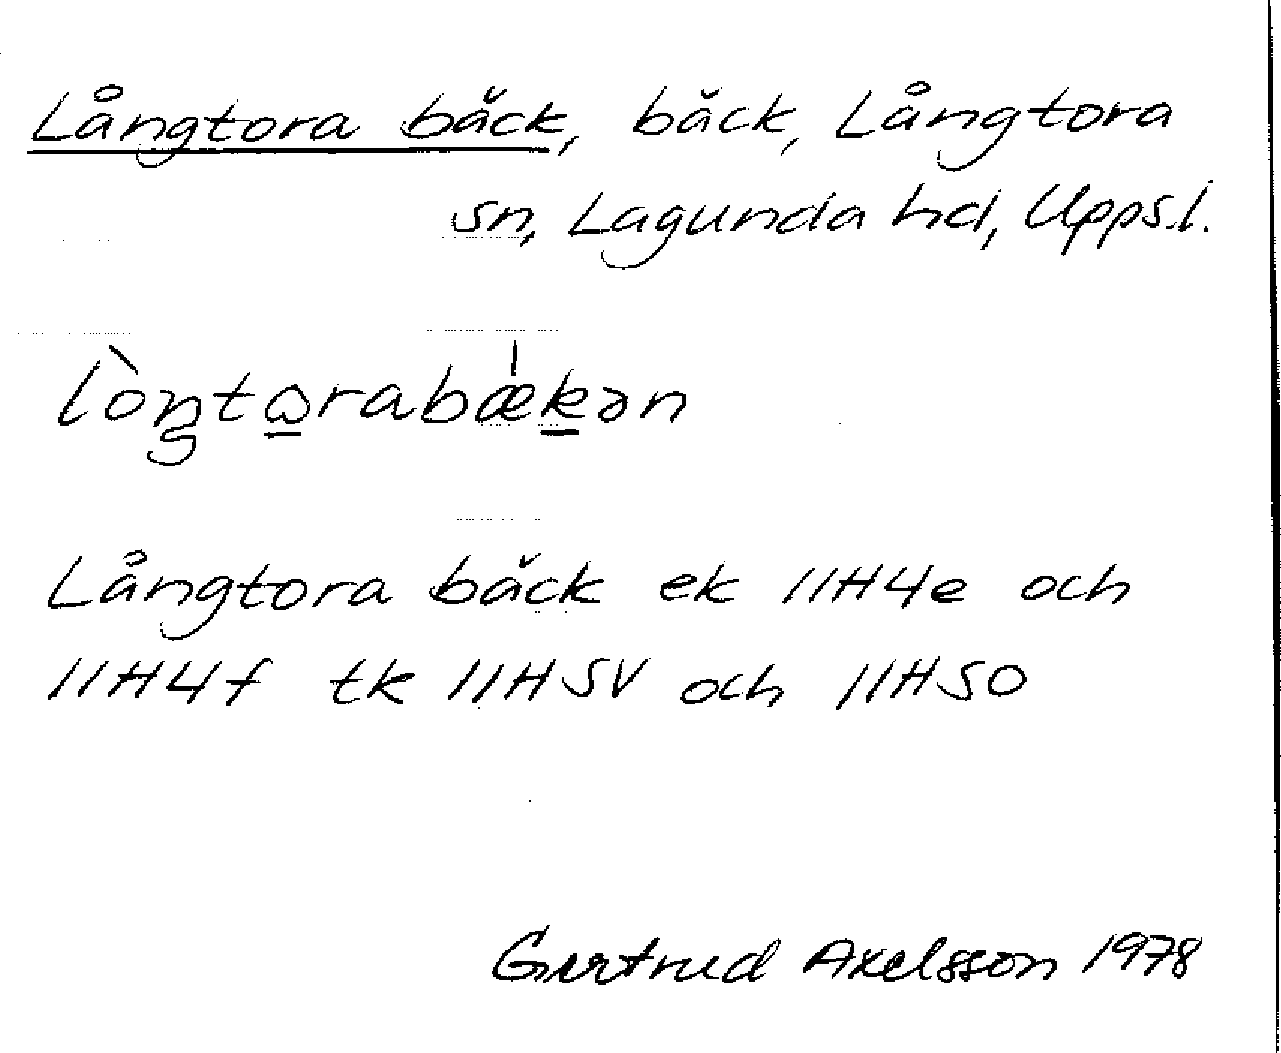 Långtora bäck, bäck, Långtora
sn, Lagunda hd, Upps.l.
lòŋtɷ̱rabǽḵən
Långtora bäck ek 11H4e och
11H4f tk 11HSV och 11HSO
Gertrud Axelsson 1978